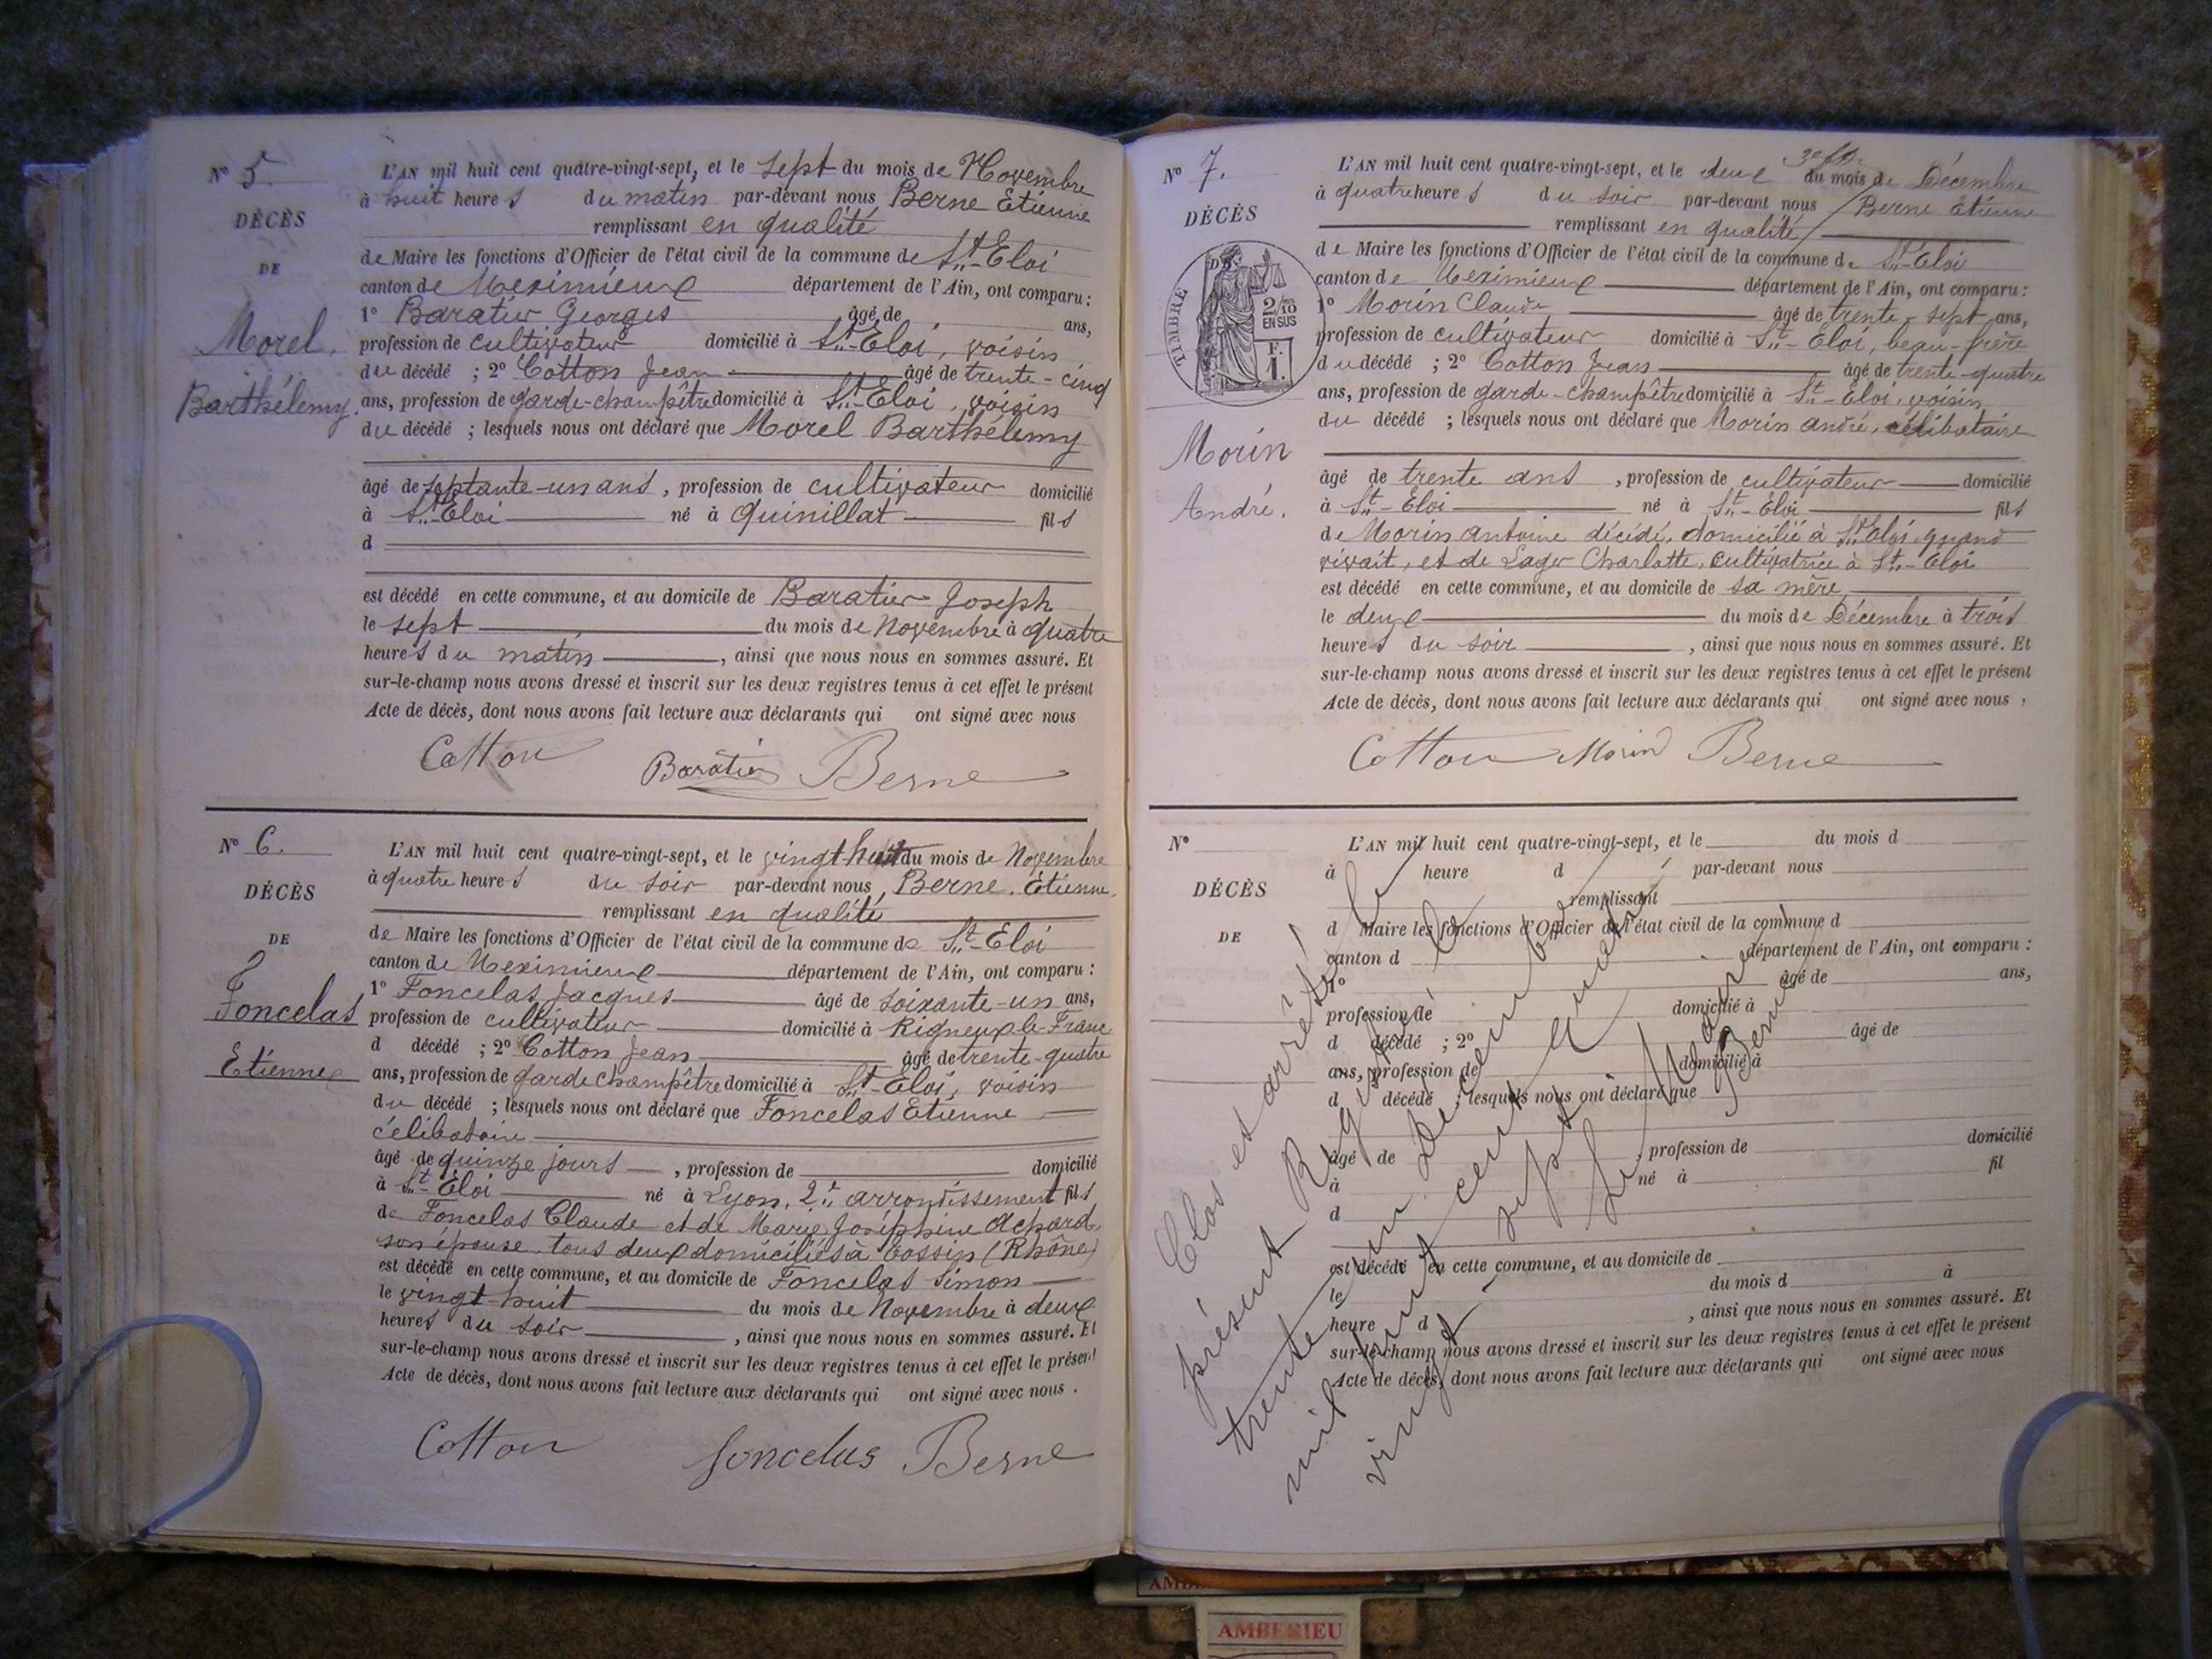 N° 5.
DÉCÈS
DE
Morel,
Barthélemy.
L'AN mil huit cent quatre-vingt-sept, et le sept du mois de Novembre
à huit heures du matin par-devant nous Berne Etienne
remplissant en qualité
de Maire les fonctions d'Officier de l'état civil de la commune de St-Eloi
canton de Meximieux département de l'Ain, ont comparu :
1° Baratier Georges âgé de ans,
profession de cultivateur domicilié à St-Eloi, voisin
du décédé ; 2° Cotton Jean âgé de trente-cinq
ans, profession de garde-champêtre domicilié à St-Eloi, voisin
du décédé ; lesquels nous ont déclaré que Morel Barthélemy
âgé de septante-un ans, profession de cultivateur domicilié
à St-Eloi né à Quinillat fils
d
est décédé en cette commune, et au domicile de Baratier Joseph
le sept du mois de Novembre à quatre
heures du matin, ainsi que nous nous en sommes assuré. Et
sur-le-champ nous avons dressé et inscrit sur les deux registres tenus à cet effet le présent
Acte de décès, dont nous avons fait lecture aux déclarants qui ont signé avec nous
Cotton Baratier Berne
N° 6.
DÉCÈS
DE
Foncelas
Etienne
L'AN mil huit cent quatre-vingt-sept, et le vingt huit du mois de Novembre
à quatre heures du soir par-devant nous, Berne, Étienne,
remplissant en qualité
de Maire les fonctions d'Officier de l'état civil de la commune de St-Eloi
canton de Meximieux département de l'Ain, ont comparu :
1° Foncelas Jacques âgé de soixante-un ans,
profession de cultivateur domicilié à Rigneux-le-Franc
d décédé ; 2° Cotton Jean âgé de trente-quatre
ans, profession de garde champêtre domicilié à St-Eloi, voisin
du décédé ; lesquels nous ont déclaré que Foncelas Etienne
célibataire
âgé de quinze jours, profession de domicilié
à St-Eloi né à Lyon, 2e arrondissement fils
de Foncelas Claude et de Marie Joséphine Achard,
son épouse tous deux domiciliés à (Rhône)
est décédé en cette commune, et au domicile de Foncelas Simon
le vingt-huit du mois de Novembre à deux
heures du soir, ainsi que nous nous en sommes assuré. Et
sur-le-champ nous avons dressé et inscrit sur les deux registres tenus à cet effet le présent
Acte de décès, dont nous avons fait lecture aux déclarants qui ont signé avec nous.
Cotton foncelas Berne
N° 7.
DÉCÈS
DE
TIMBRE
2/10
EN SUS
F.
1.
Morin
André.
L'AN mil huit cent quatre-vingt-sept, et le deux du mois de Décembre
à quatre heures du soir par-devant nous Berne Etienne
remplissant en qualité
de Maire les fonctions d'Officier de l'état civil de la commune de St-Eloi
canton de Meximieux département de l'Ain, ont comparu :
1° Morin Claude âgé de trente-sept ans,
profession de cultivateur domicilié à St-Eloi, beau-frère
du décédé ; 2° Cotton Jean âgé de trente-quatre
ans, profession de garde-champêtre domicilié à St-Eloi, voisin
du décédé ; lesquels nous ont déclaré que Morin André, célibataire
âgé de trente ans, profession de cultivateur domicilié
à St-Eloi né à St-Eloi fils
de Morin Antoine décédé, domicilié à St-Eloi quand
vivait, et de Lager Charlotte, cultivatrice à St-Eloi
est décédé en cette commune, et au domicile de sa mère
le deux du mois de Décembre à trois
heures du soir, ainsi que nous nous en sommes assuré. Et
sur-le-champ nous avons dressé et inscrit sur les deux registres tenus à cet effet le présent
Acte de décès, dont nous avons fait lecture aux déclarants qui ont signé avec nous,
Cotton Morin Berne
N°
DÉCÈS
DE
L'AN mil huit cent quatre-vingt-sept, et le du mois d
à heure d par-devant nous
remplissant
d Maire les fonctions d'Officier de l'état civil de la commune d
canton d département de l'Ain, ont comparu :
1° âgé de ans,
profession de domicilié à
d décédé ; 2° âgé de
ans, profession de domicilié à
d décédé ; lesquels nous ont déclaré que
âgé de profession de domicilié
à né à fil
d
est décédé en cette commune, et au domicile de
le du mois d à
heure d , ainsi que nous nous en sommes assuré. Et
sur-le-champ nous avons dressé et inscrit sur les deux registres tenus à cet effet le présent
Acte de décès, dont nous avons fait lecture aux déclarants qui ont signé avec nous
Clos et arrêté le
présent Registre le
trente un Décembre
mil huit cent quatre
vingt sept
Le Maire
Berne
AMBERIEU